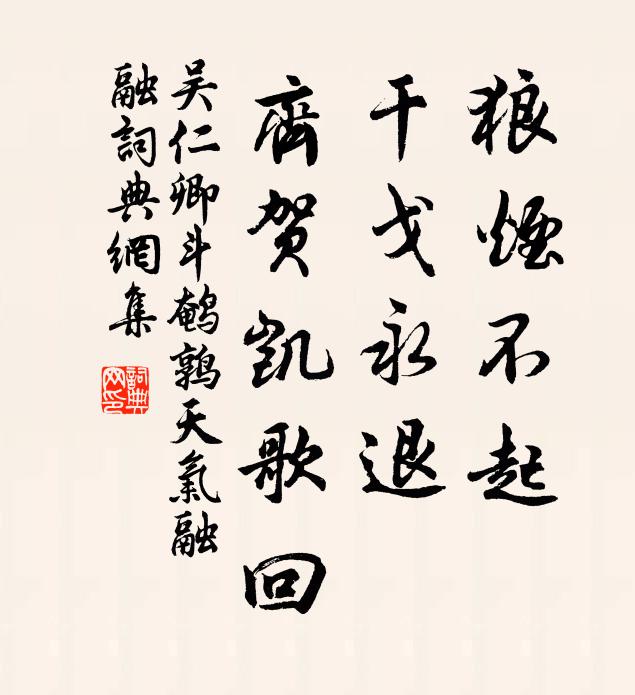 狼煙不起
干戈永退
齊賀凱歌回
吴仁卿斗鹌鹑天氣融
融詞典網集
詞典
网印